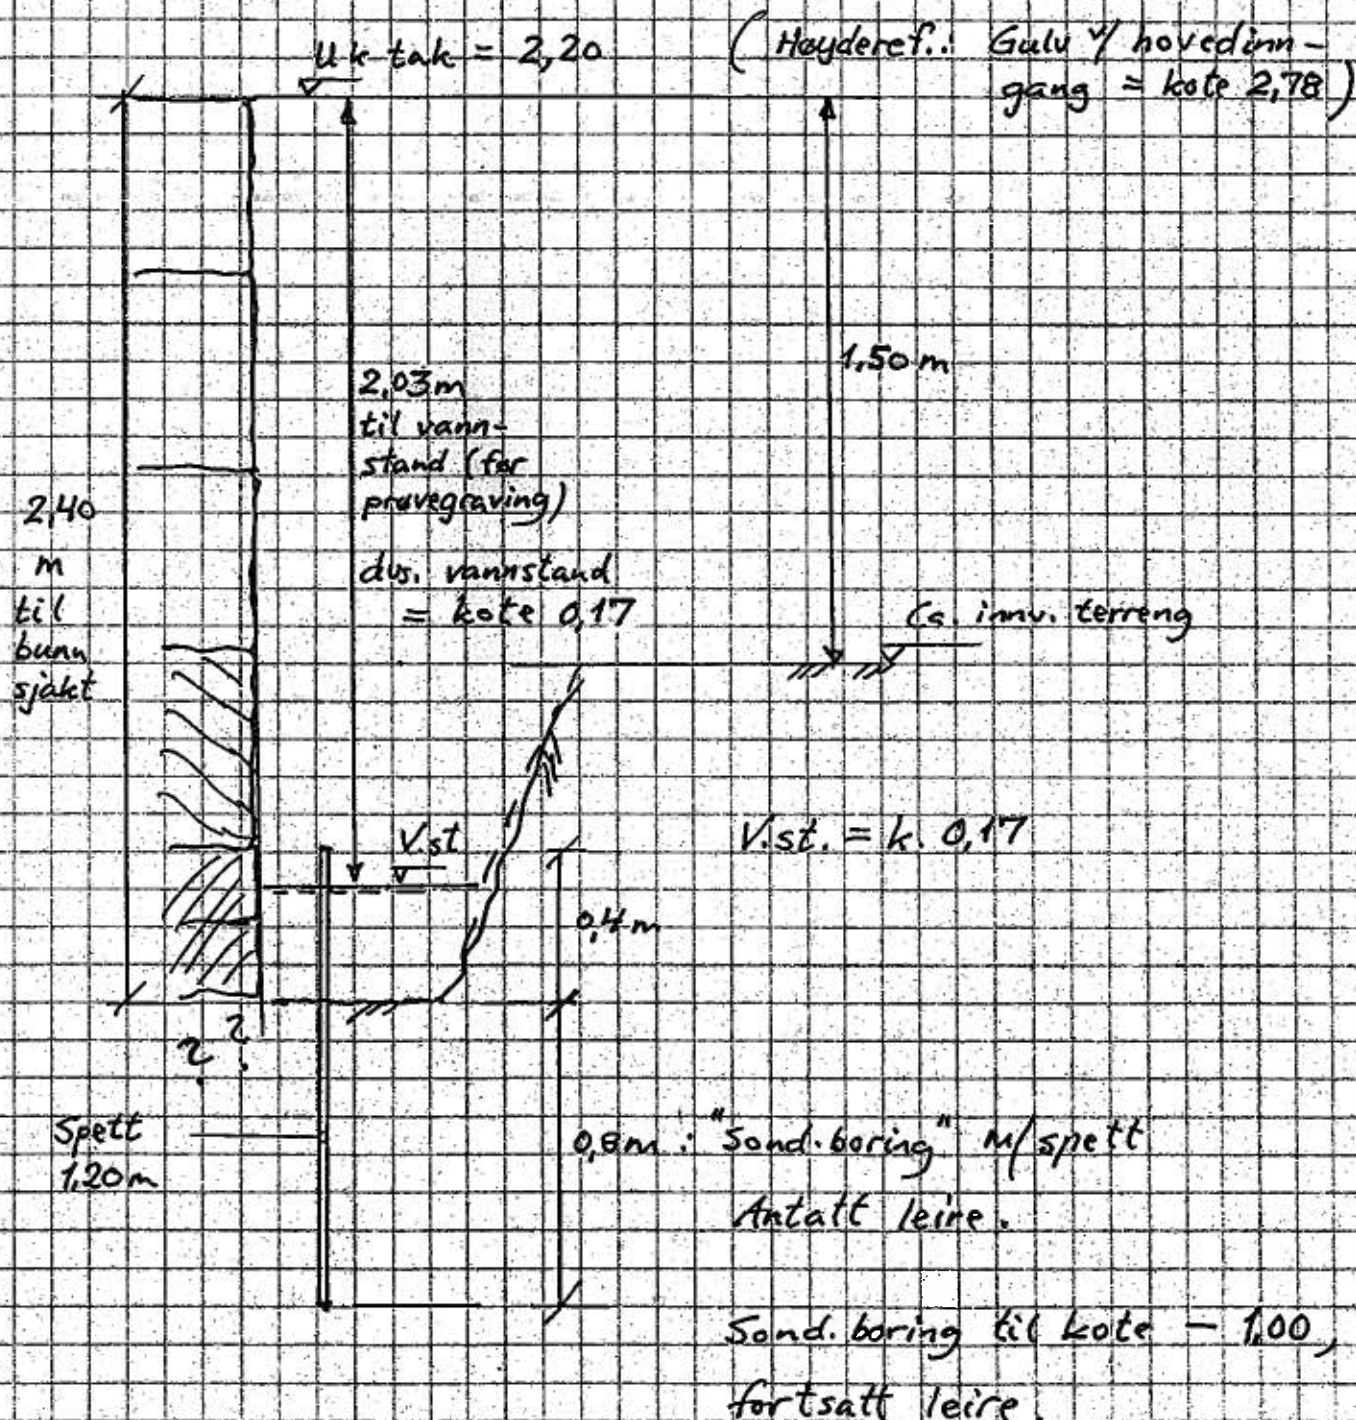 Uk tak = 2,20
(Høyderef.: Gulv v/ hovedinn-
gang = kote 2,78)
1,50 m
2,03m
til vann-
stand (før
prøvegraving)
dvs. vannstand
= kote 0,17
2,40
m
til
bunn
sjakt
Ca. innv. terreng
V.st
V.st. = k. 0,17
0,4m
? ?
Spett
1,20m
0,8m : "Sond.boring" m/spett
Antatt leire.
Sond.boring til kote - 1,00,
fortsatt leire.